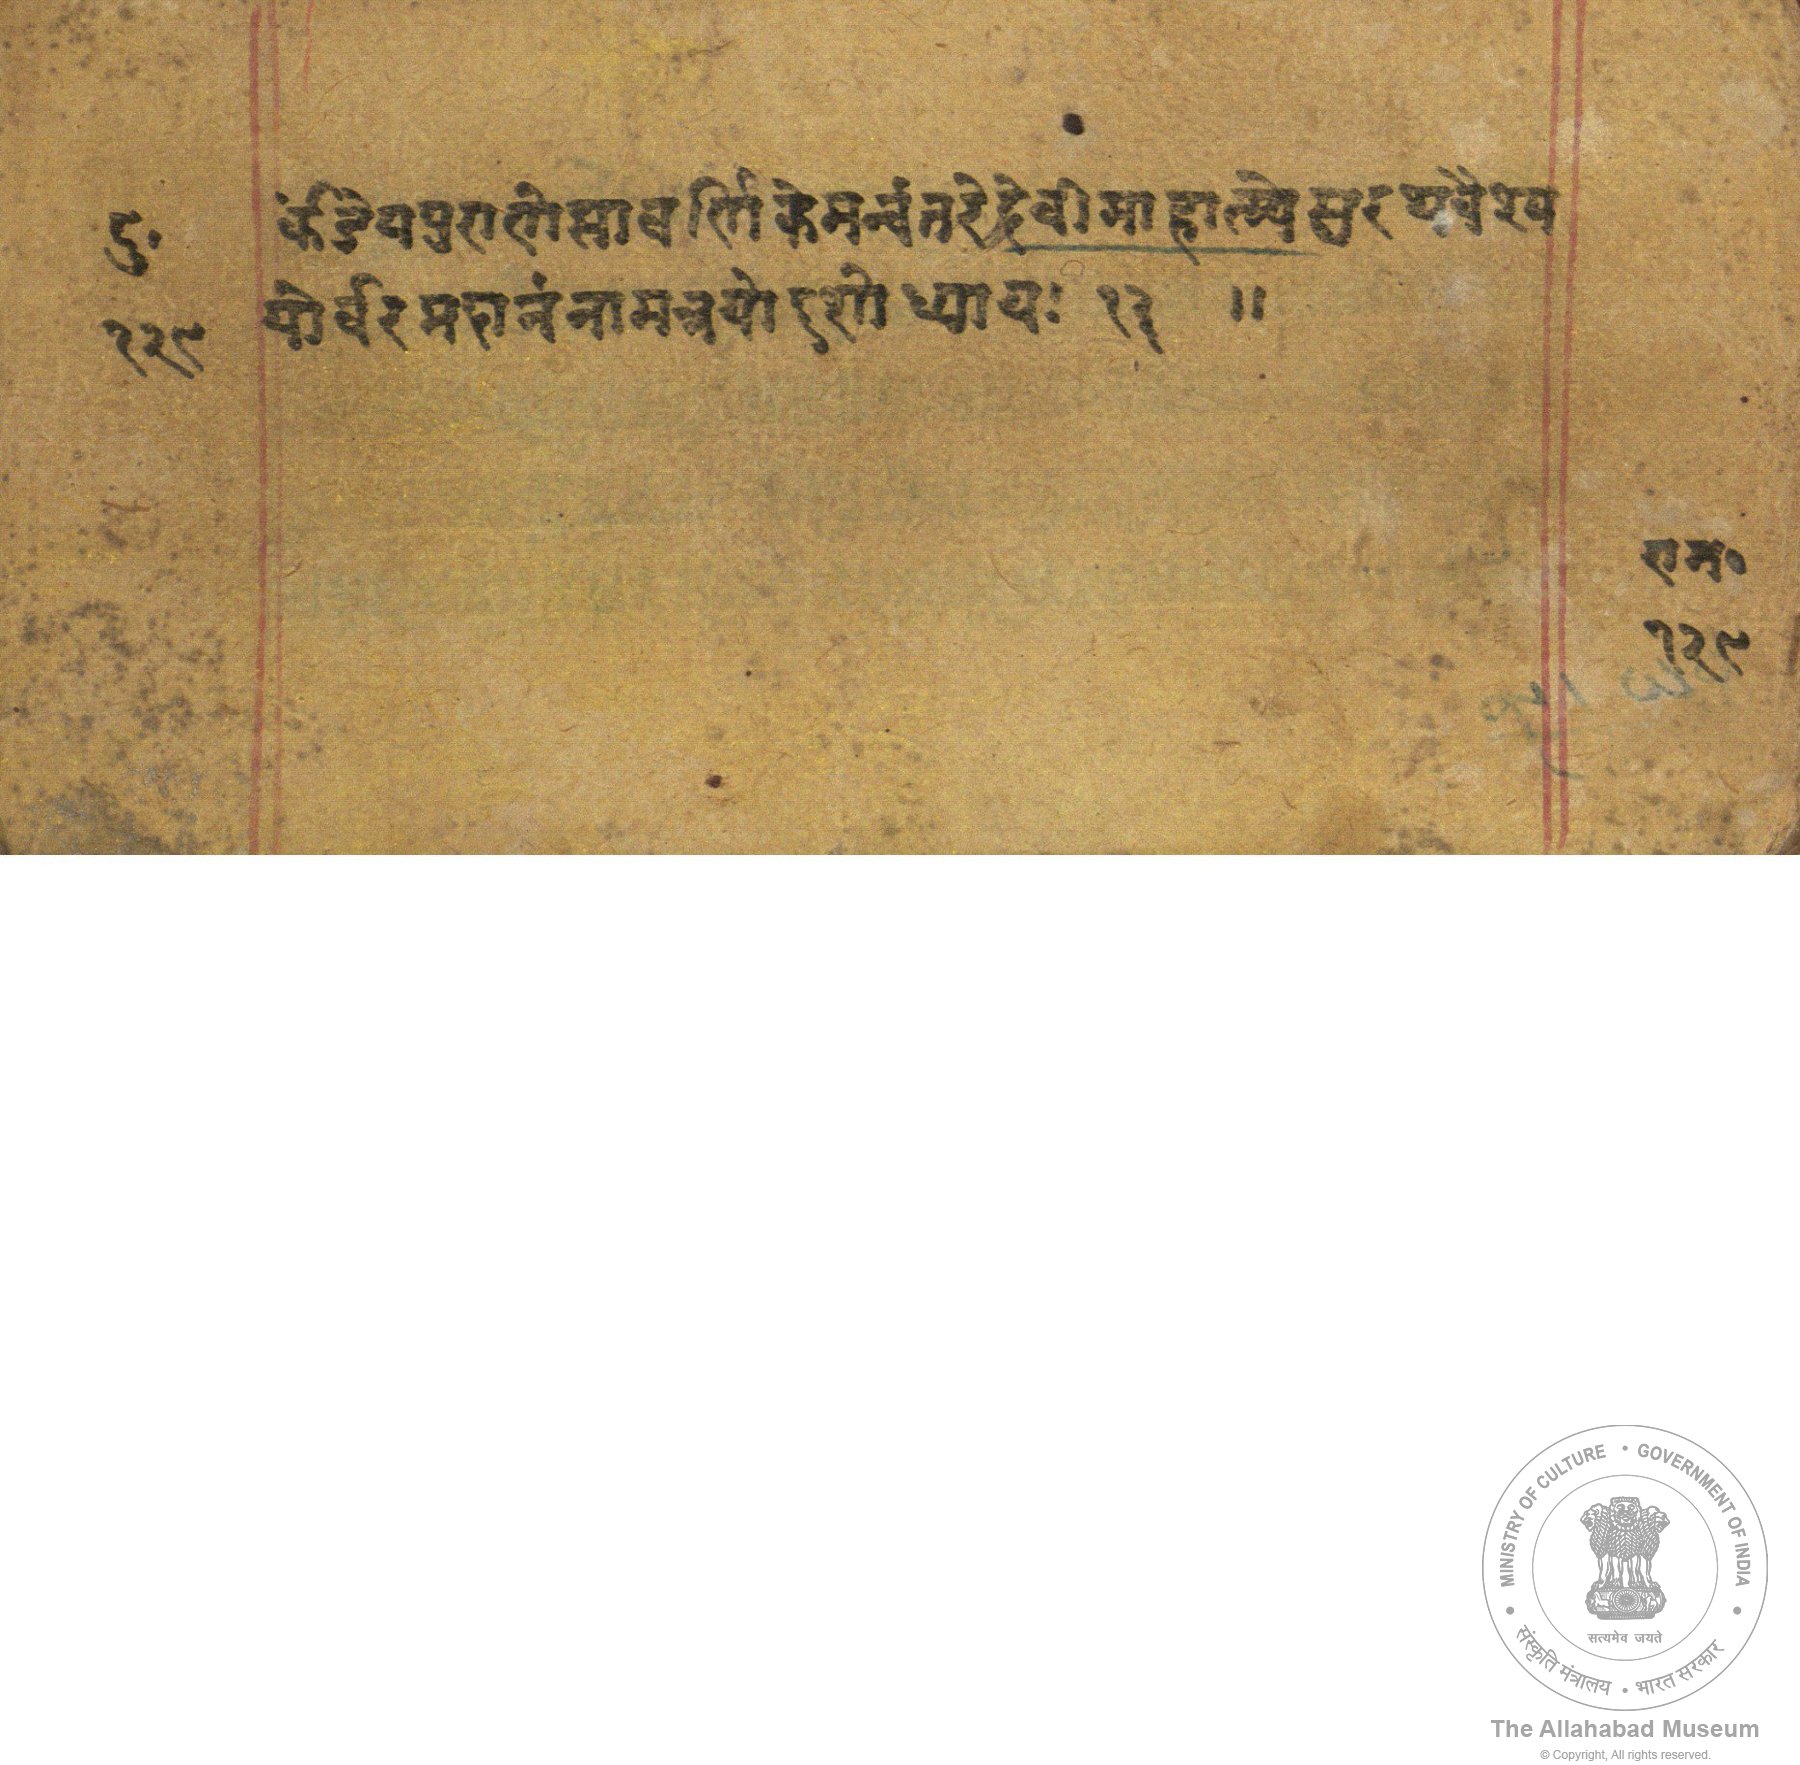 दु॰
१२९
र्कंडेयपुराणेसावर्णिकेमन्वंतरेदेवीमाहात्म्येसुरथवैश्य
योर्वरप्रदानंनामत्रयोदशोध्यायः १३ ॥
राम॰
१२९
MINISTRY OF CULTURE • GOVERNMENT OF INDIA
सत्यमेव जयते
संस्कृति मंत्रालय • भारत सरकार
The Allahabad Museum
© Copyright, All rights reserved.